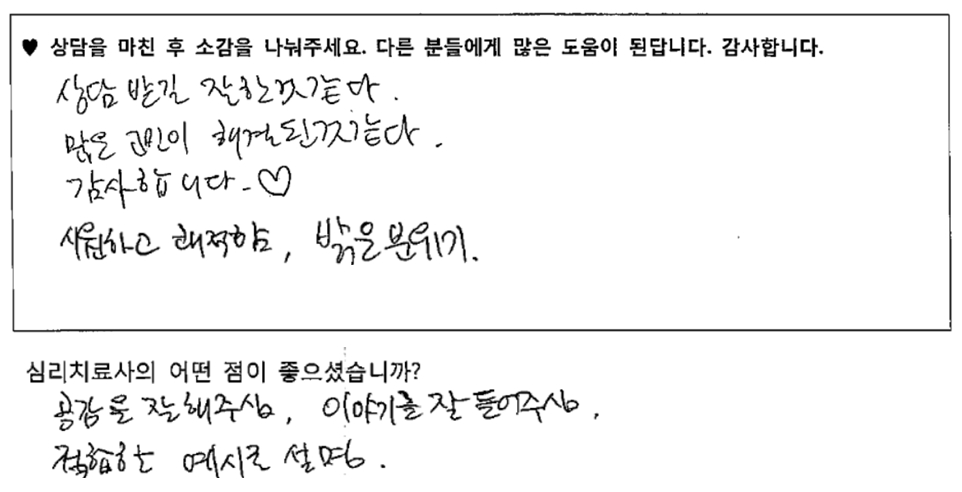 ♥ 상담을 마친 후 소감을 나눠주세요. 다른 분들에게 많은 도움이 된답니다. 감사합니다.
상담 받길 잘한것같다.
많은 고민이 해결된것같다.
감사합니다-♡
시원하고 쾌적함, 밝은분위기.
심리치료사의 어떤 점이 좋으셨습니까?
공감을 잘해주심, 이야기를 잘 들어주심,
적합한 예시로 설명.